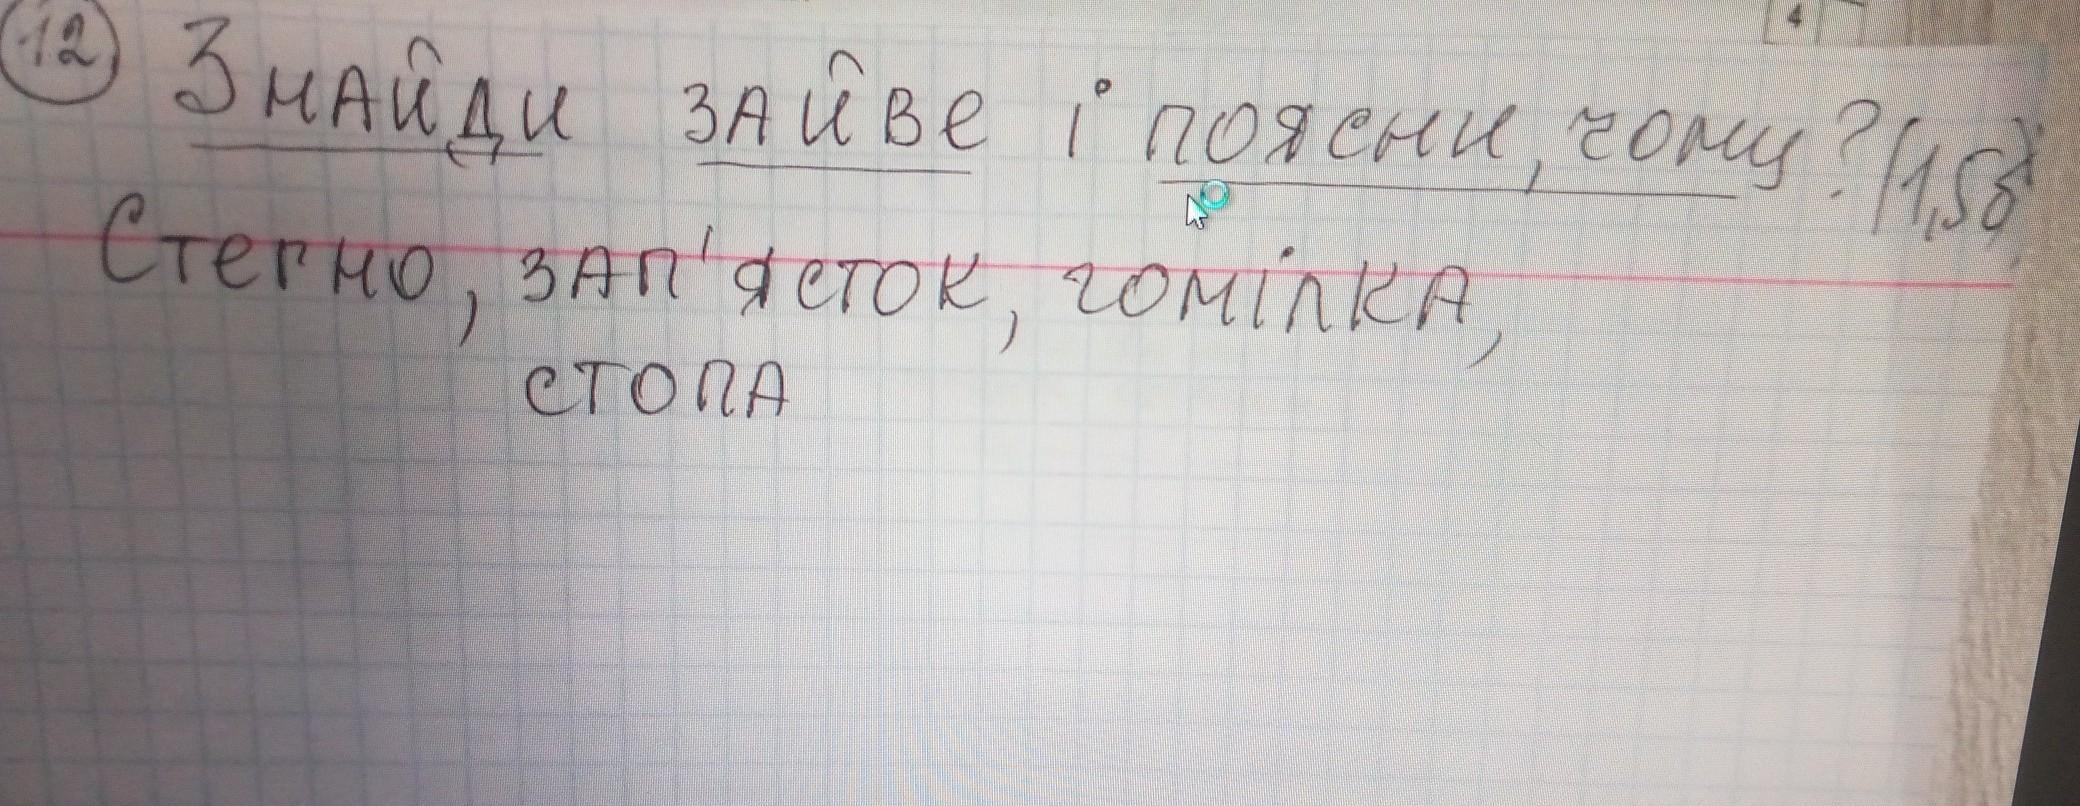 4
12 Знайди зайве і поясни, чому? (1,5б)
Стегно, зап'ясток, гомілка,
стопа